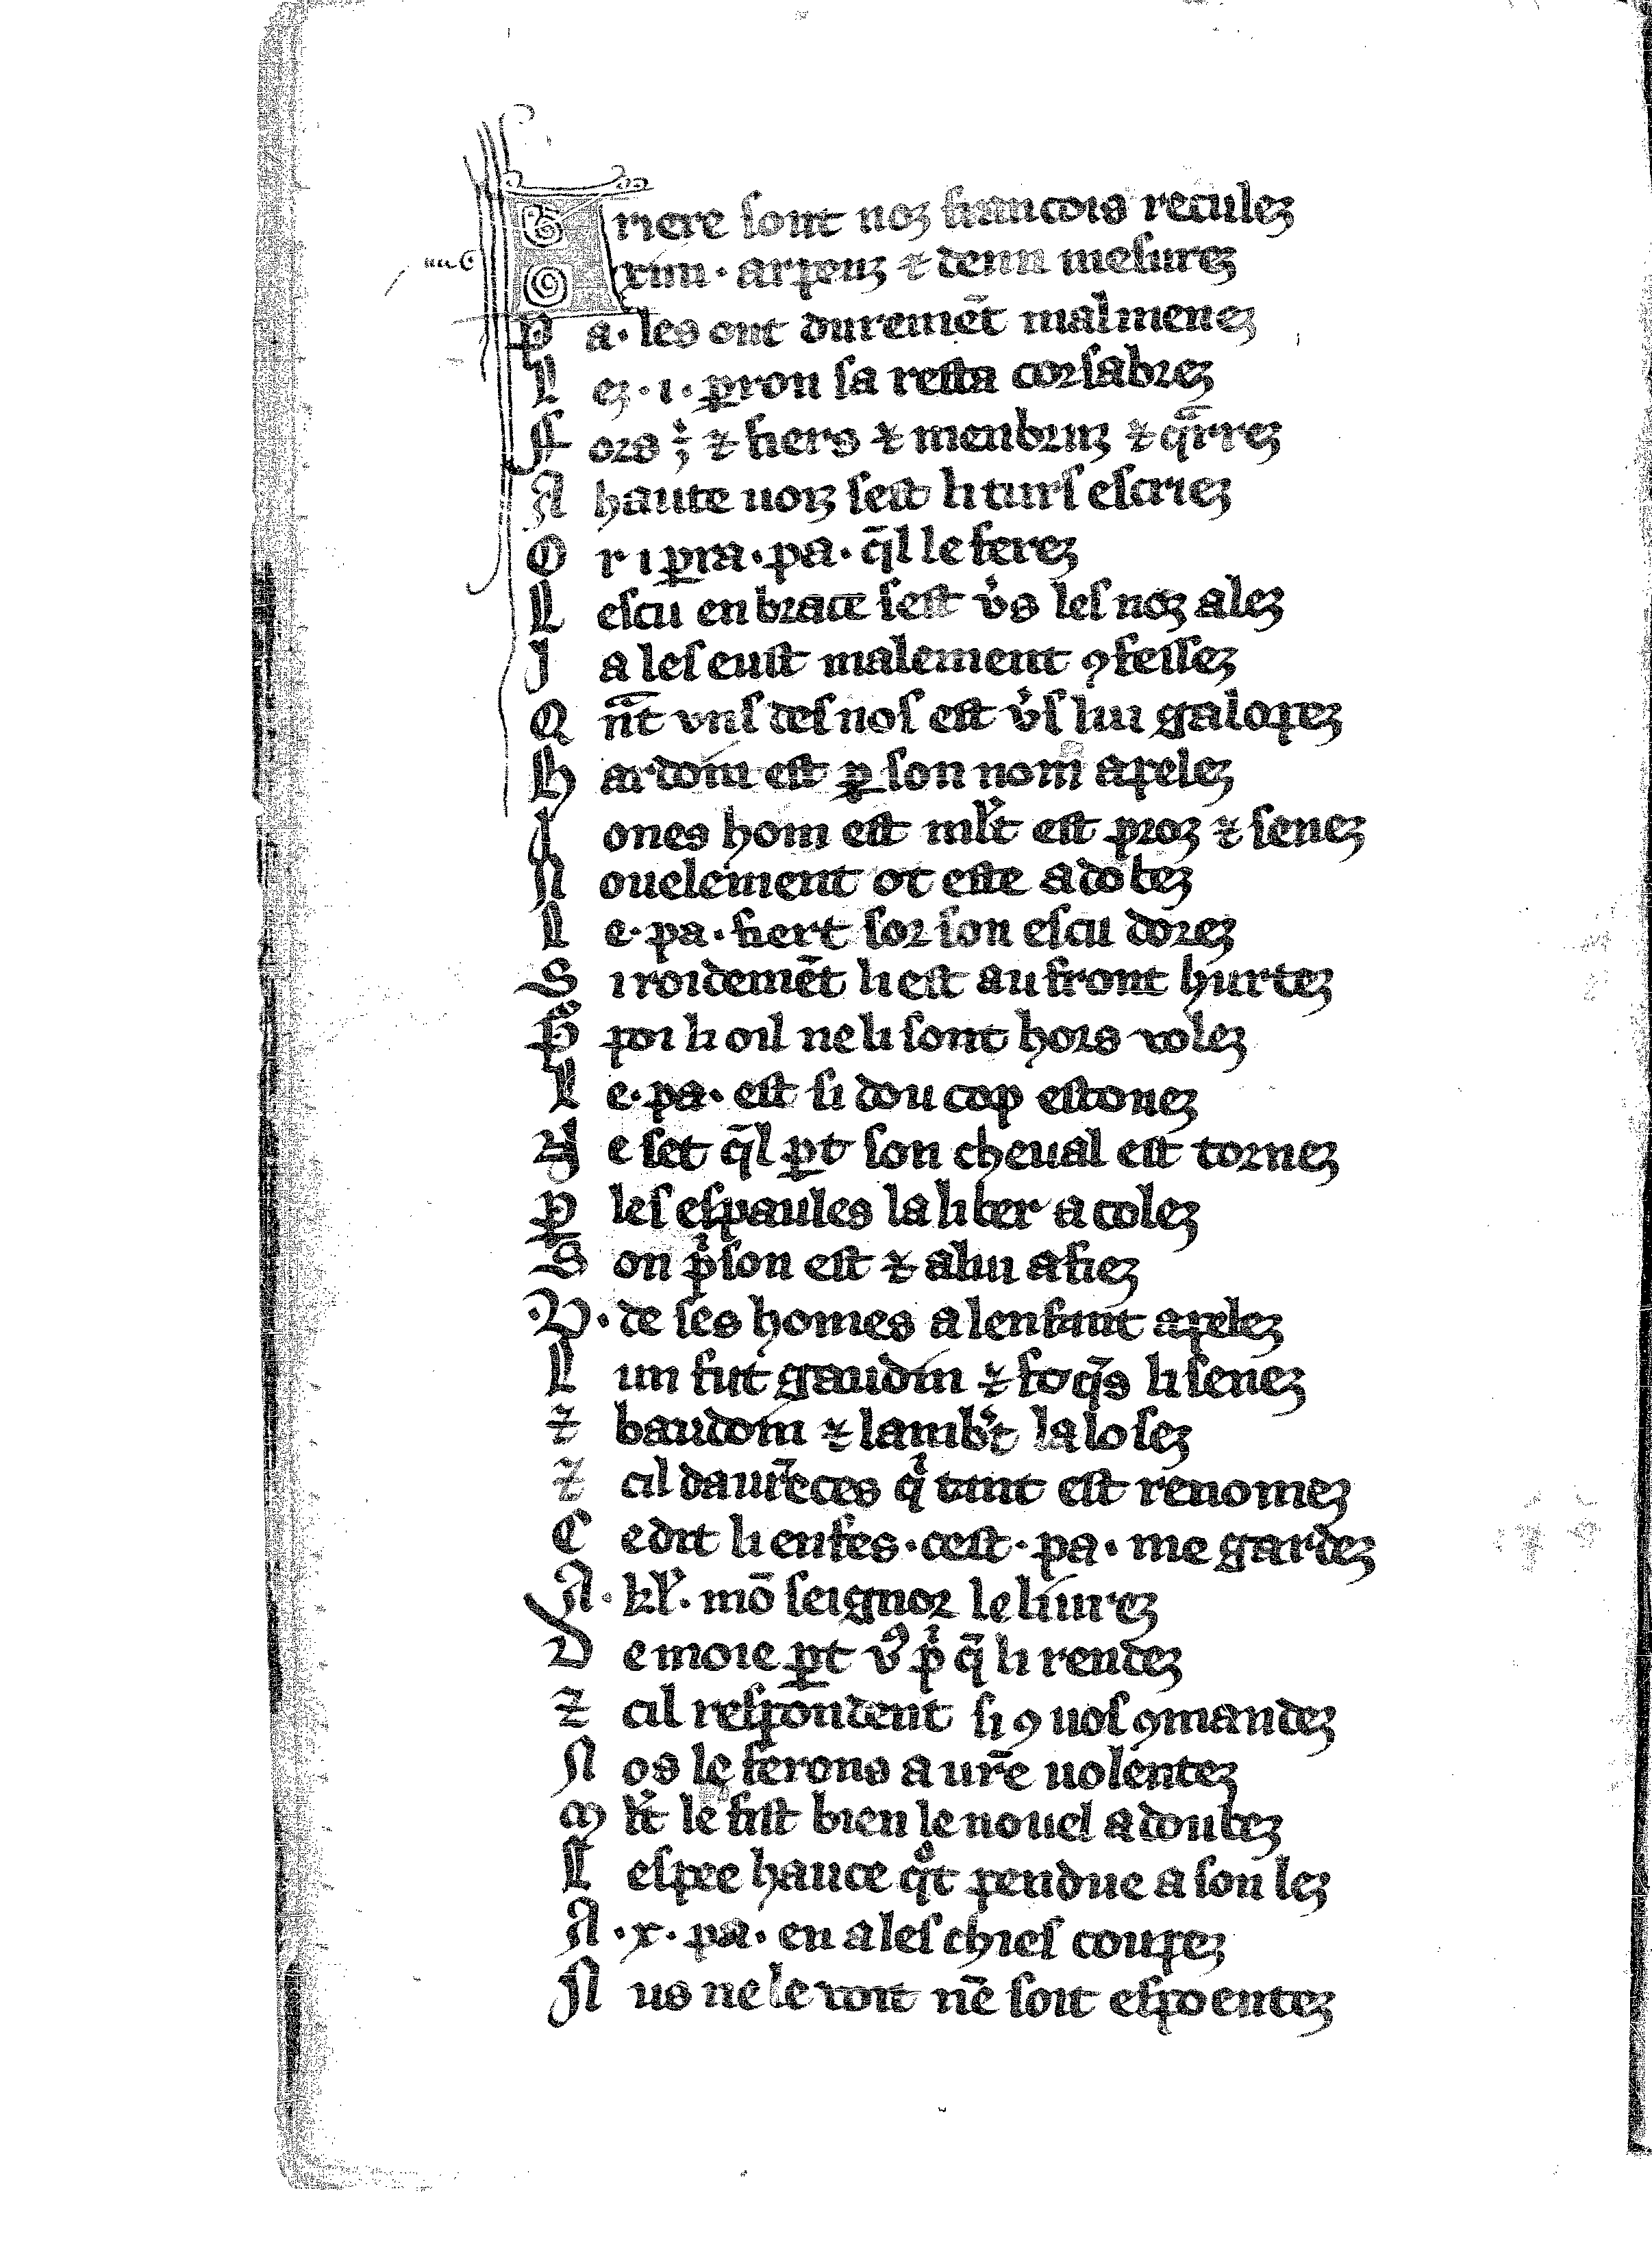 Arriere sont noz francois reculez
.xiiii. arpenz ⁊ demi mesurez
P a. les ont duremēt malmenez
L ez .i. ꝑron sa resta corsabrez
F ors ÷ ⁊ fiers ⁊ menbruz ⁊ q̄rrez
A haute uoiz sest li turs escriez
O r i ꝑra .pa. q̄l le ferez
L escu enbrace sest v̓s les noz alez
J a les eust malement ꝯfessez
Q n̄t vns des nos est v̓s lui galopez
H ardoin est ꝑ son nom apelez
J ones hom est ml̓t est proz ⁊ senez
N ouelement ot este adobez
L e .pa. fiert sor son escu dorez
S i roidemēt li est au front hurtez
P poi li oil ne li sont hors volez
L e .pa. est si dou cop estonez
N e set q̄l ꝑt son cheual est tornez
P les espaules la li ber acolez
S on p̓son est ⁊ a lui afiez
.V. de ses homes a lenfant apelez
L un fut gaudin ⁊ foq̄s li senez
⁊ baudoin ⁊ lamb̓t la losez
⁊ cil daur̄eces q̓ tant est renomez
C e dit li enfes .cest .pa. me gardez
A .kl̓. mō seignor le liurez
D e moie ꝑt v̓ p̓ q̄ li rendez
⁊ cil respondent si ꝯ uos ꝯmandez
N os le ferons a ur̄e uolentez
M l̓t le fist bien le nouel adoubez
L espee hauce q̓t pendue a son lez
A .x. pa. en a les chies coupez
N us ne le voit nē soit espoentez